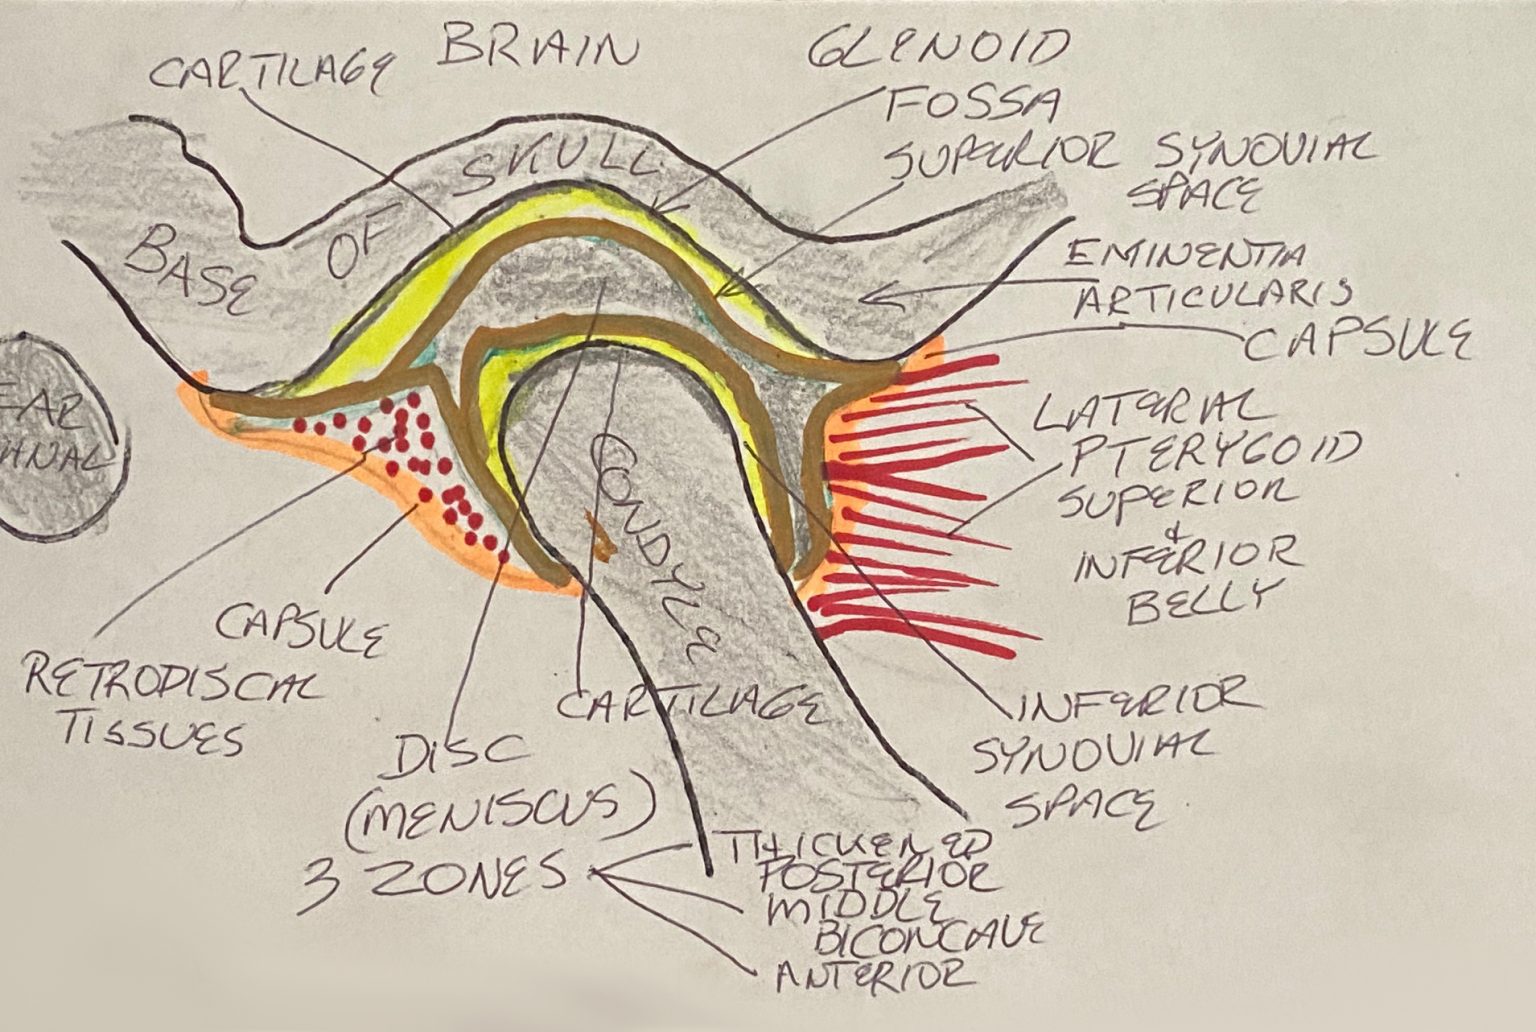 BRAIN
CARTILAGE
GLENOID
FOSSA
SUPERIOR SYNOVIAL
SPACE
BASE OF SKULL
EMINENTIA
ARTICULARIS
CAPSULE
EAR
CANAL
LATERAL
PTERYGOID
SUPERIOR
&
INFERIOR
BELLY
CONDYLE
CAPSULE
RETRODISCAL
TISSUES
CARTILAGE
INFERIOR
SYNOVIAL
SPACE
DISC
(MENISCUS)
3 ZONES
THICKENED
POSTERIOR
MIDDLE
BICONCAVE
ANTERIOR